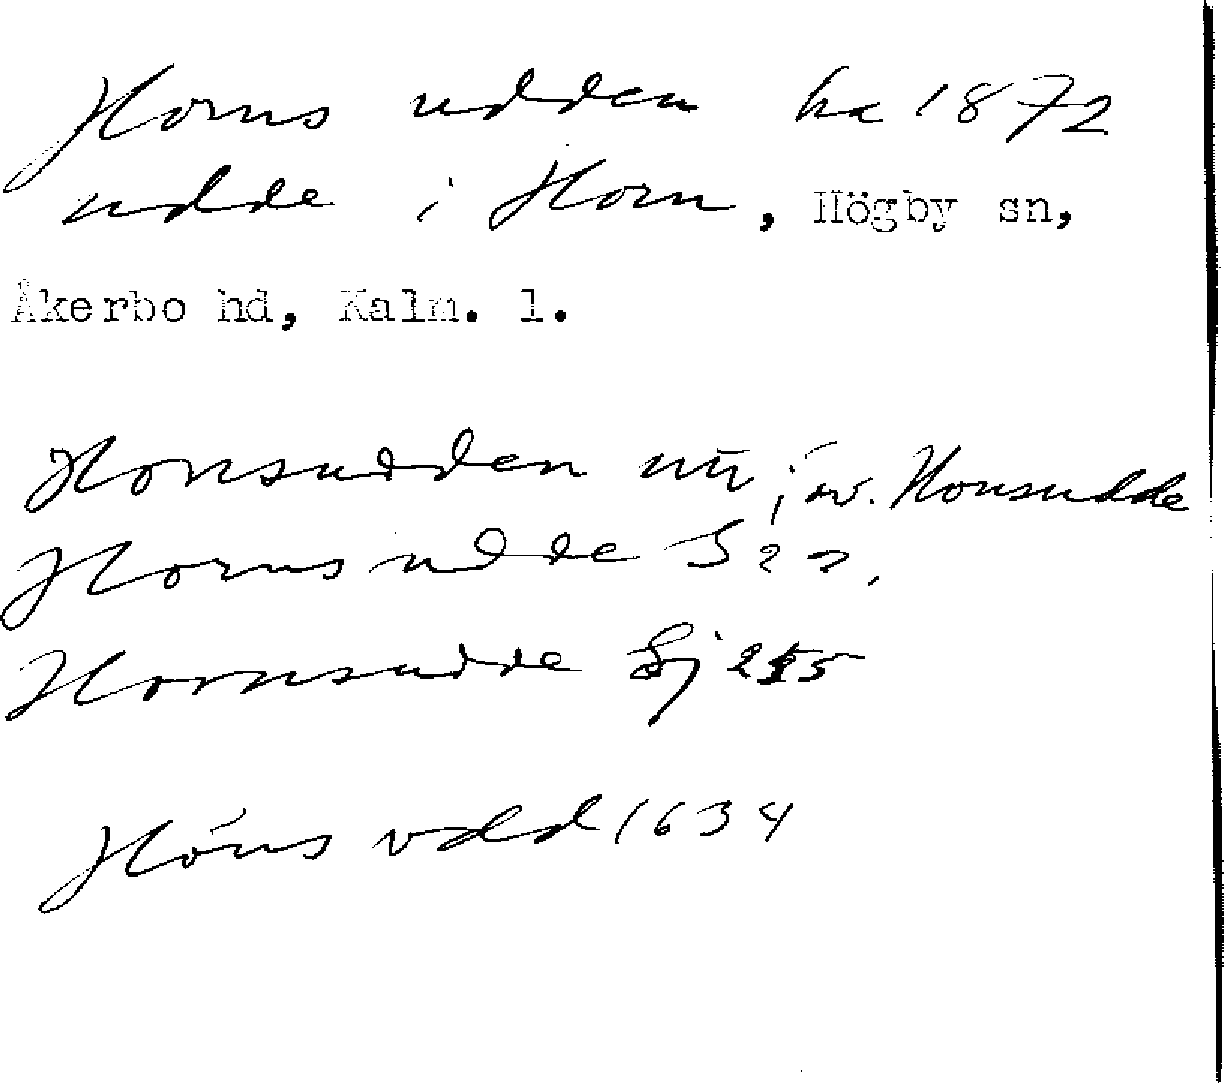 Horns udden hk 1872
udde i Horn, Högby sn,
Åkerbo hd, Kalm. l.
Honsudden
Honsudde
Hornsudde
Hornsudde Sj
Höns vdd 1634